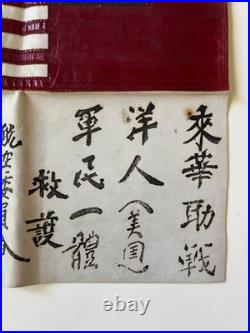 來華助戰
洋人(美国)
軍民一體
救護
航空委員會